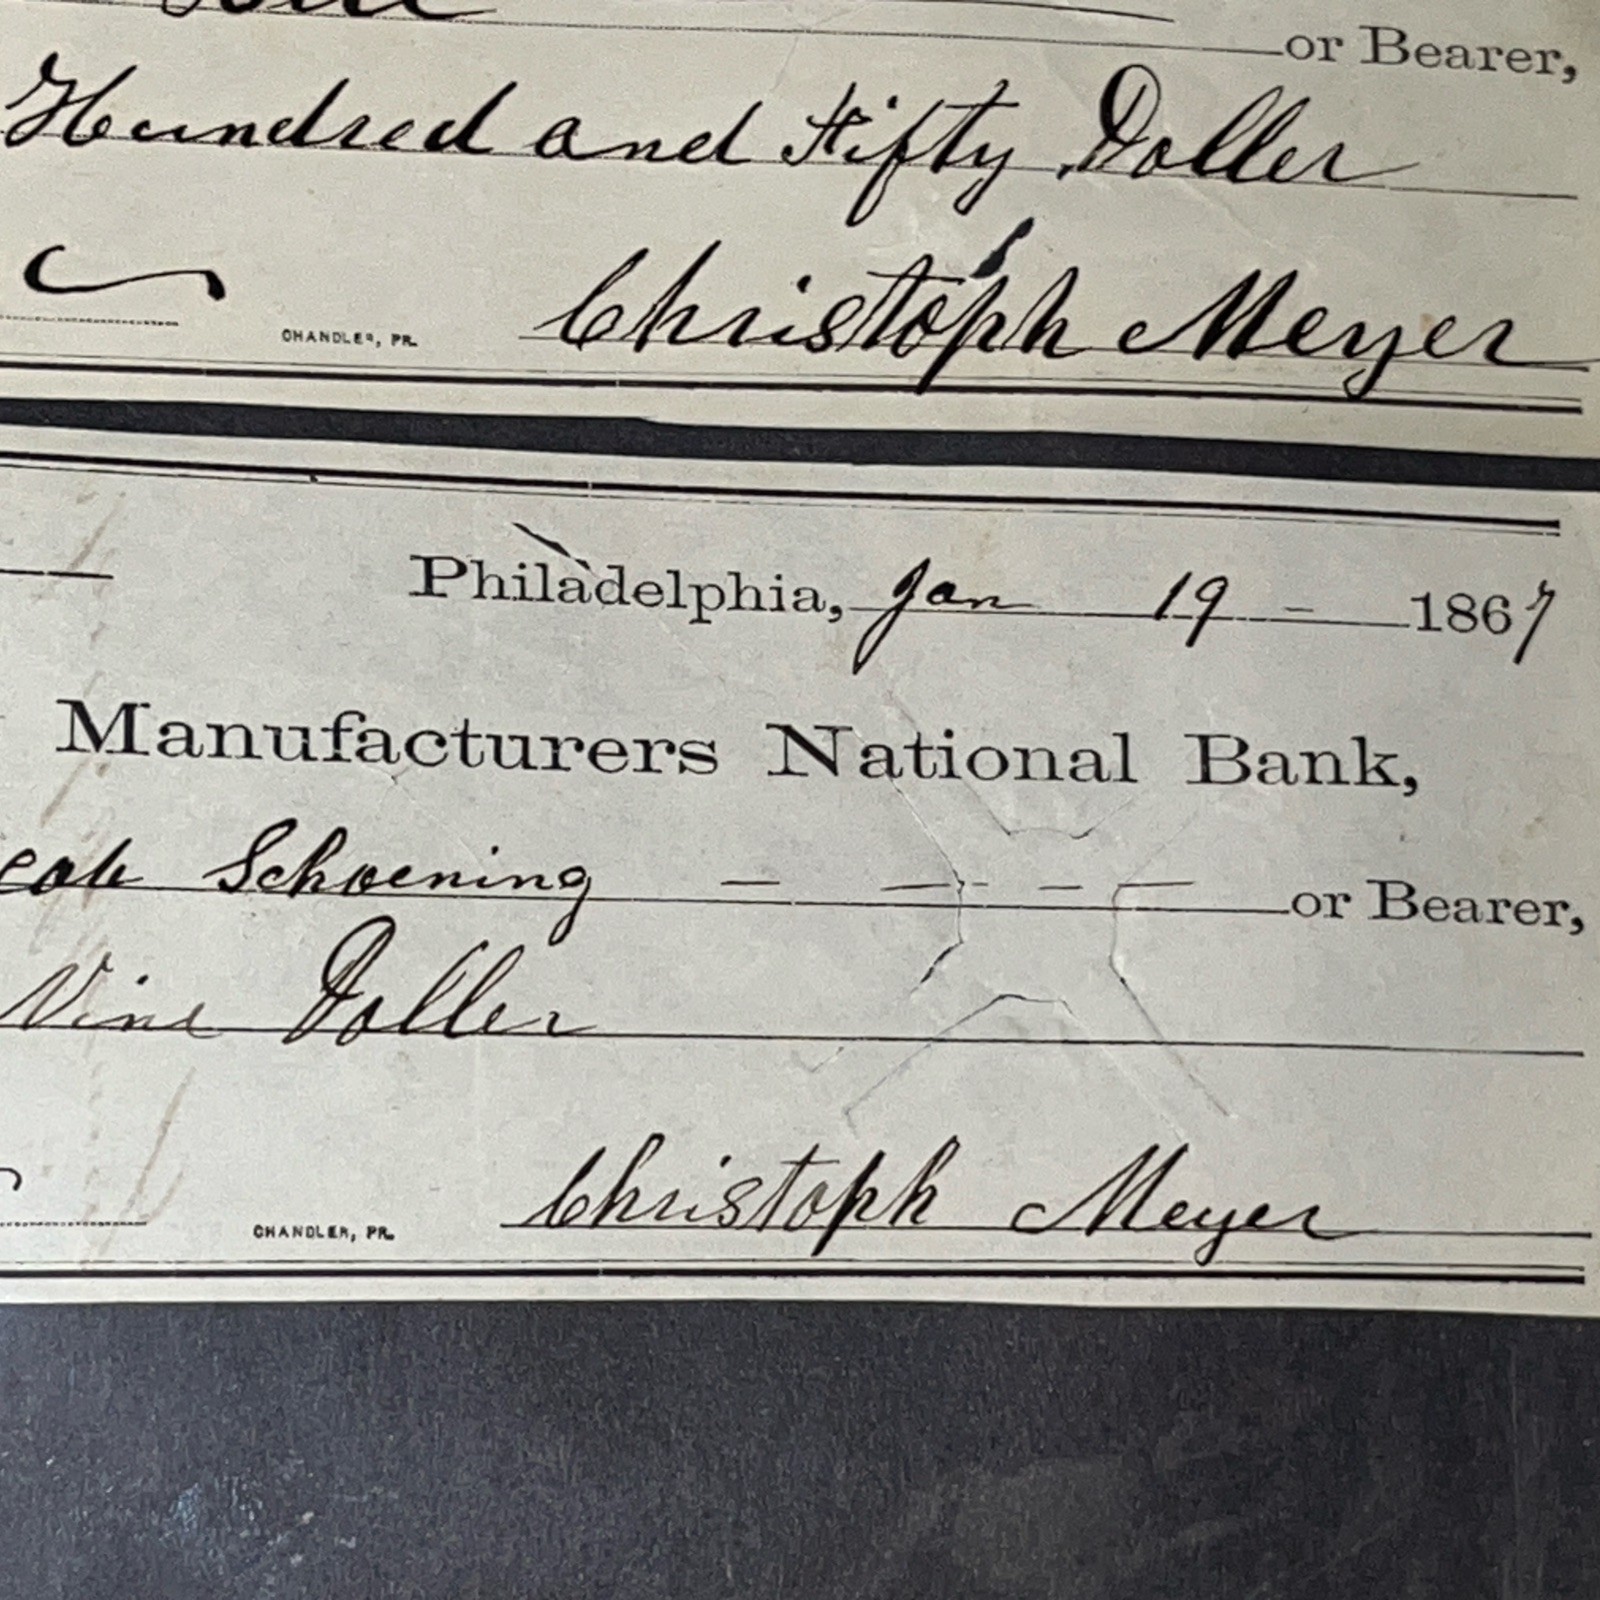 or Bearer,
Hundred and Fifty Doller
CHANDLER, PR. Christoph Meyer
Philadelphia, Jan 19 - 1867
Manufacturers National Bank,
Schoening - - - - - or Bearer,
Nine Doller
CHANDLER, PR. Christoph Meyer